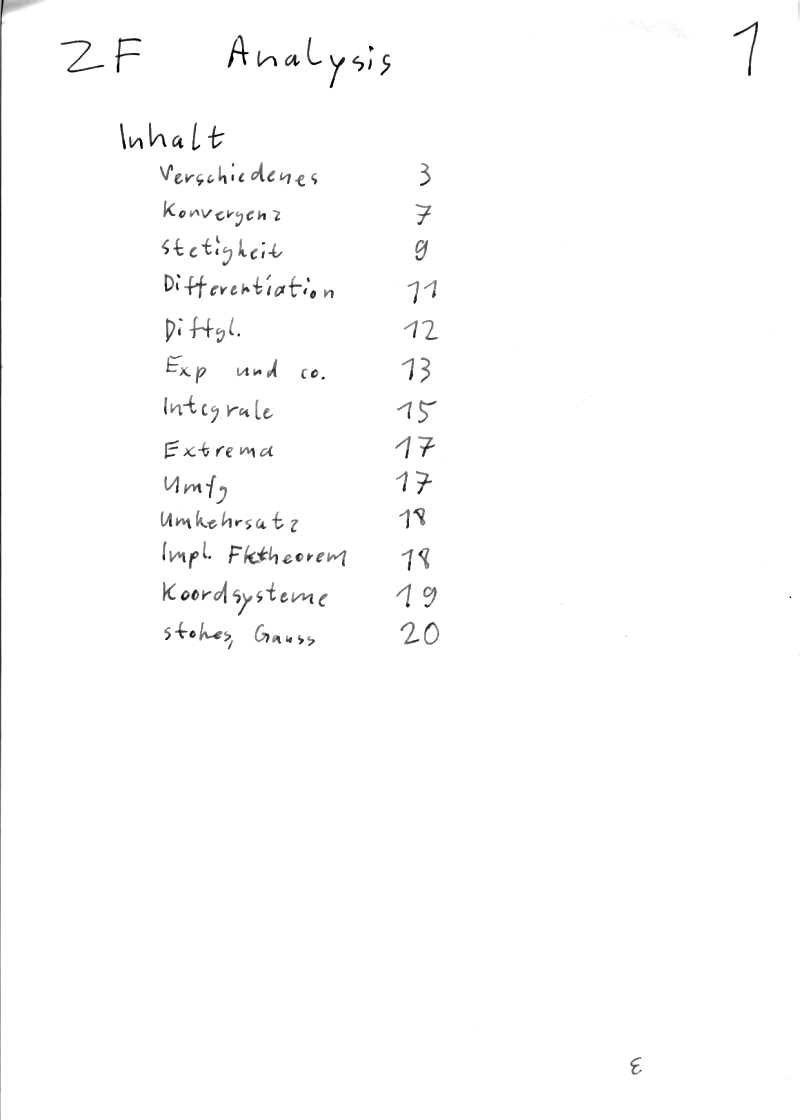 ZF Analysis 1
Inhalt
Verschiedenes 3
Konvergenz 7
Stetigkeit 9
Differentiation 11
Diffgl. 12
Exp und co. 13
Integrale 15
Extrema 17
Umfg 17
Umkehrsatz 18
Impl. Fktheorem 18
Koordsysteme 19
Stokes, Gauss 20
ε